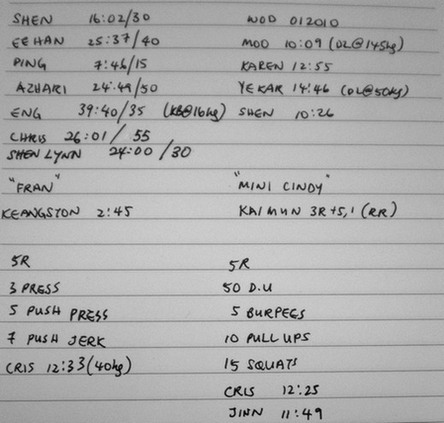 SHEN 16:02/30
EEHAN 25:37/40
PING 7:46/15
AZHARI 24:49/50
ENG 39:40/35 (KB@16kg)
CHRIS 26:01/55
SHEN LYNN 24:00/30
WOD 012010
MOD 10:09 (DL@145kg)
KAREN 12:55
YEKAR 14:46 (DL@50kg)
SHEN 10:26
"FRAN"
KEANGSTON 2:45
"MINI CINDY"
KAIMUN 3R+5,1 (RR)
5R
3 PRESS
5 PUSH PRESS
7 PUSH JERK
CRIS 12:33(40kg)
5R
50 D.U
5 BURPEES
10 PULL UPS
15 SQUATS
CRIS 12:25
JINN 11:49